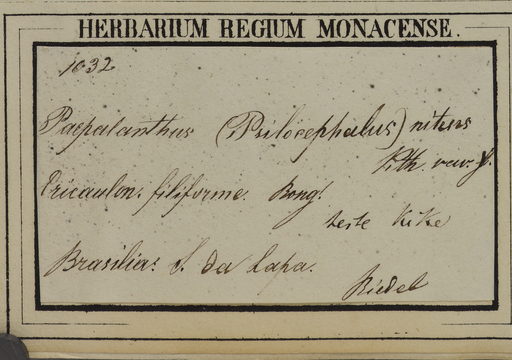 HERBARIUM REGIUM MONACENSE.
1032
Paepalanthus (Psilocephalus) nitens
Kth. var. γ.
Eriocaulon. filiforme. Bong.
teste Kcke
Brasilia. S. da Lapa.
Riedel